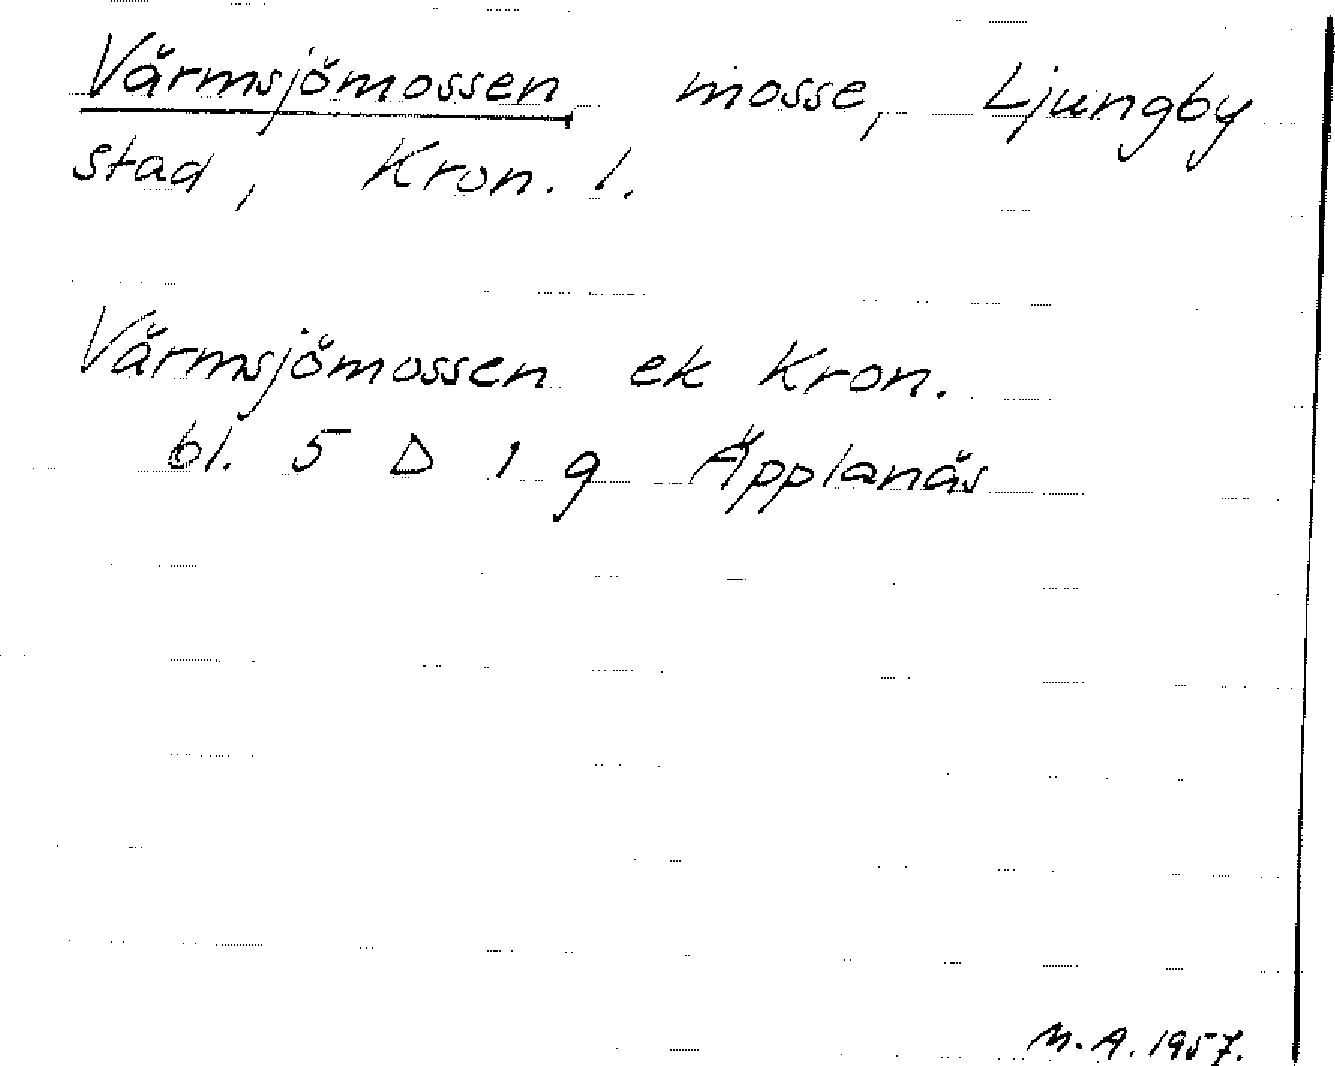 Värmsjömossen mosse, Ljungby
stad, Kron. l.
Värmsjömossen ek Kron.
bl. 5 D 1 g Äpplanäs
M.A. 1957.